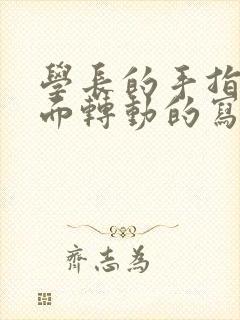 學長的手指
而轉動的寫
齊志為